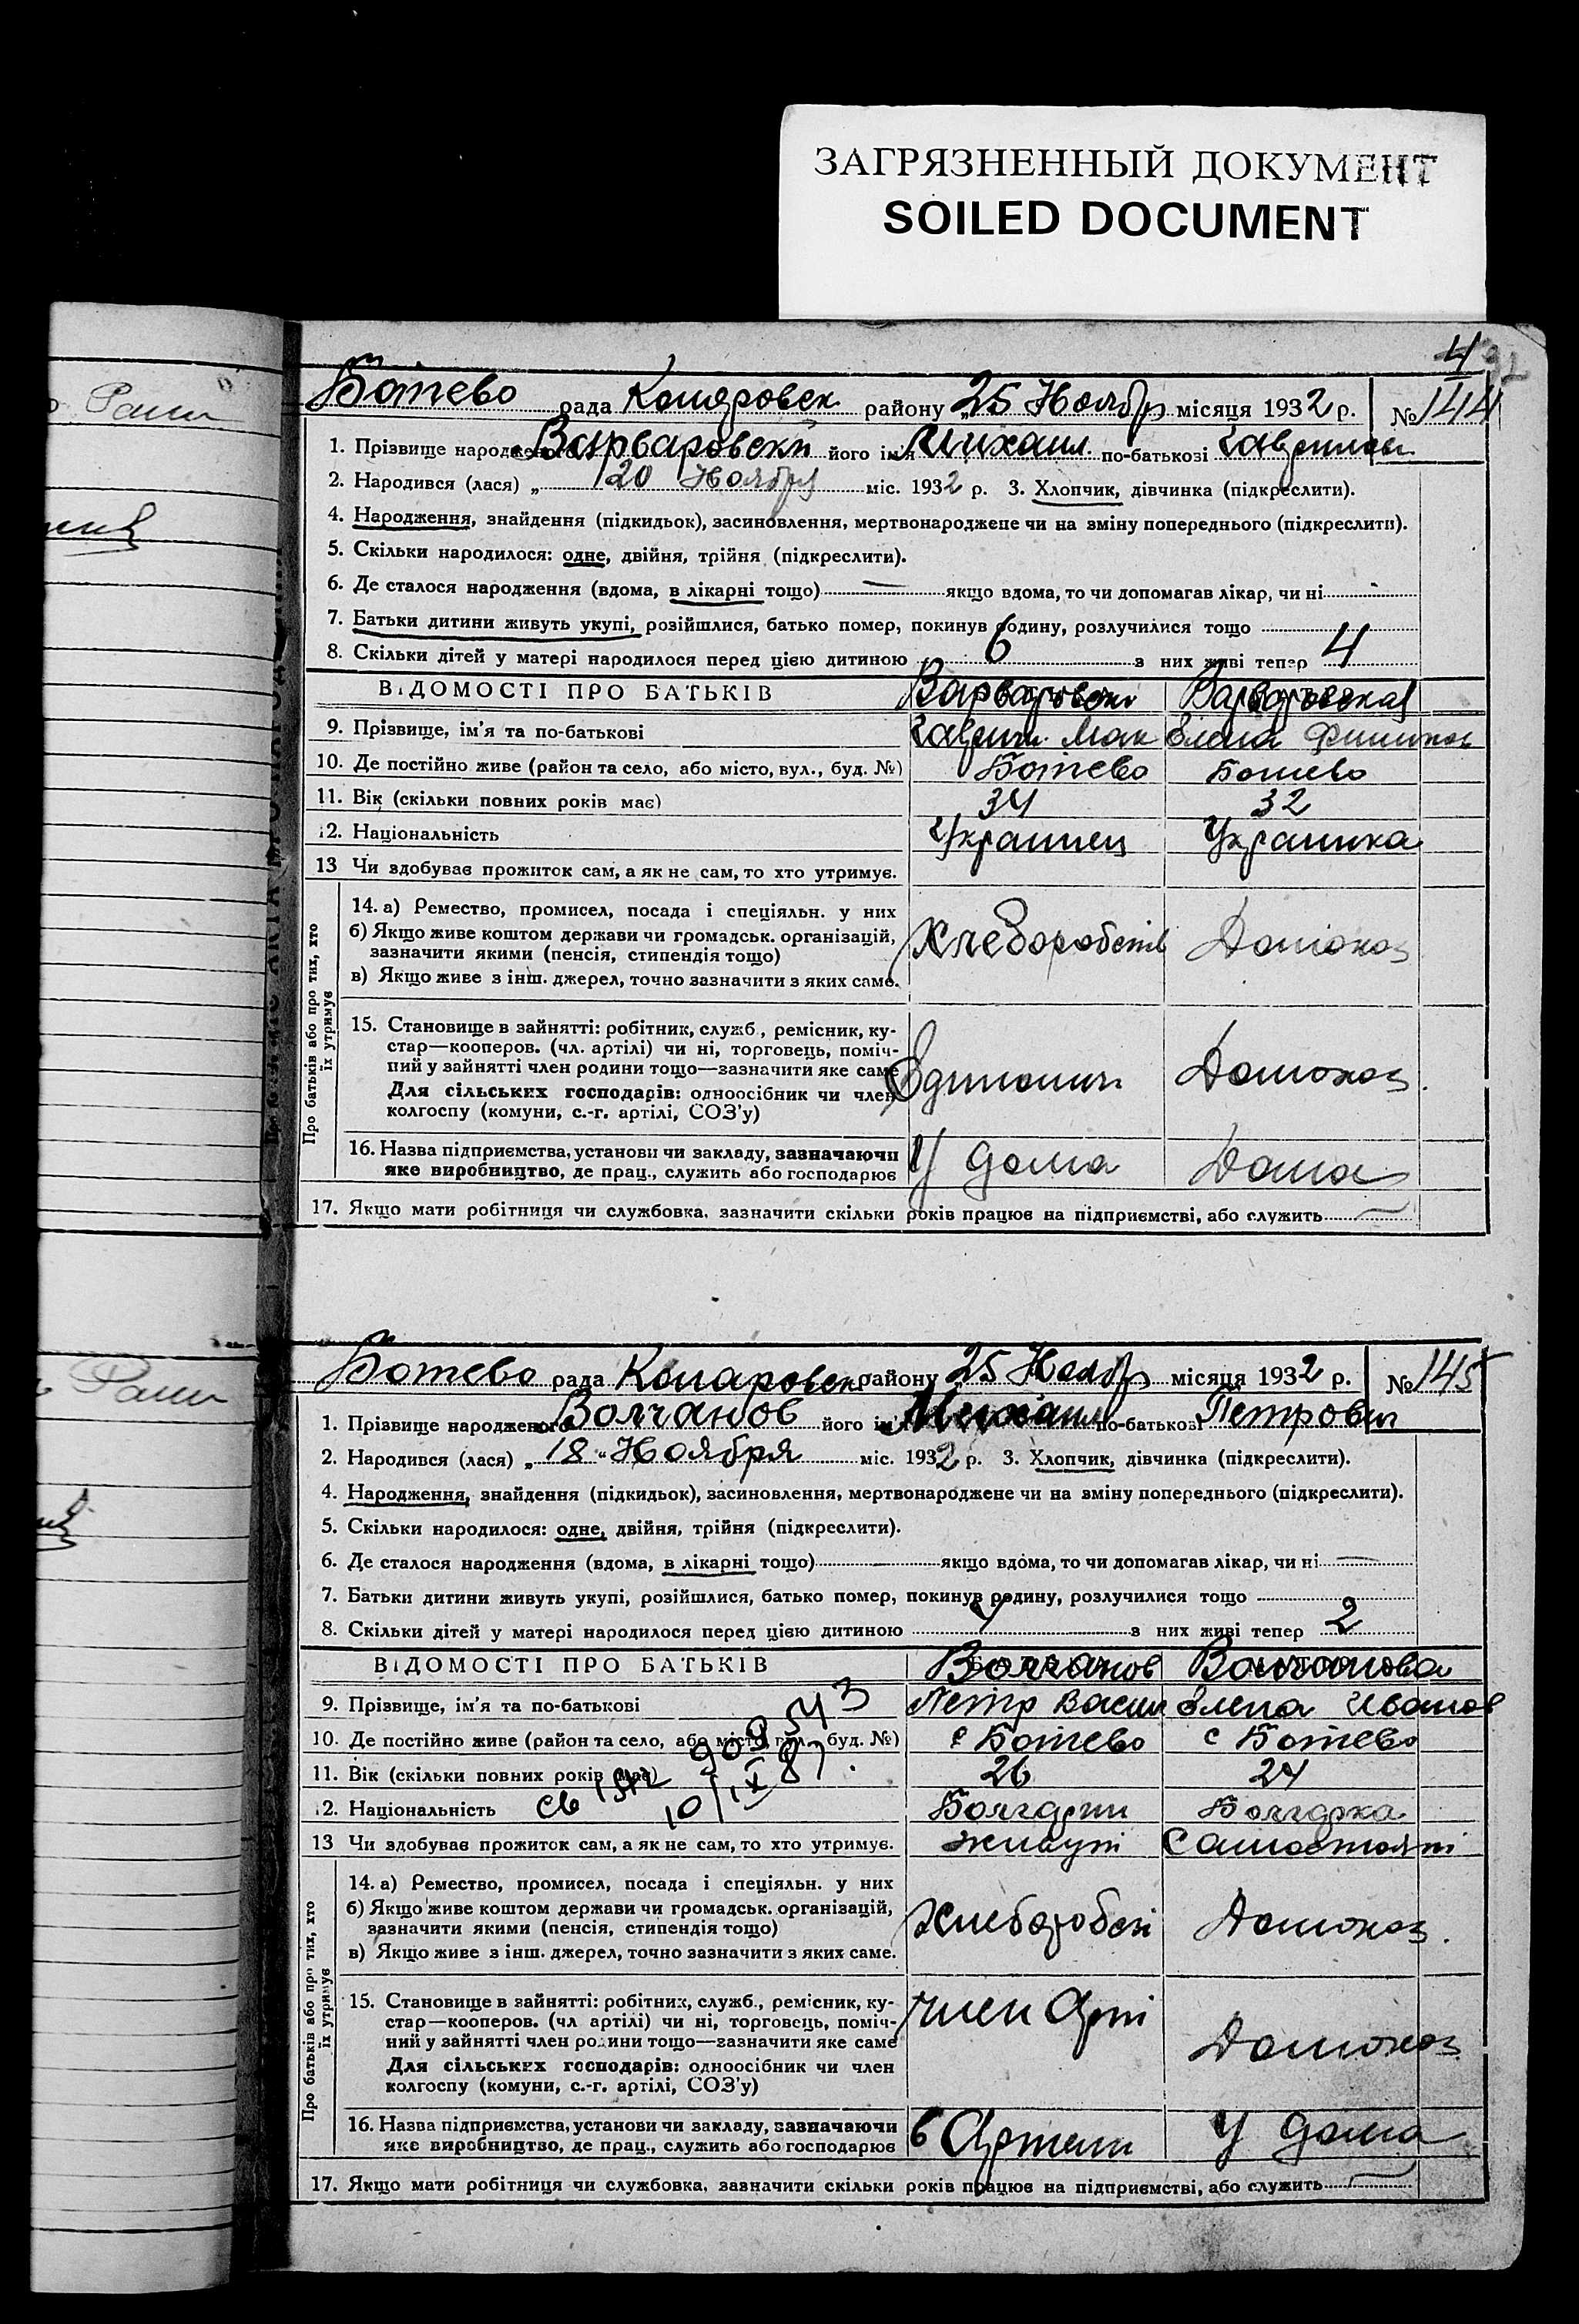 ЗАГРЯЗНЕННЫЙ ДОКУМЕНТ
SOILED DOCUMENT
4
Ботево рада Коларовск району 25 Ноябр місяця 1932 р. № 144
1. Прізвище народженого Варваровски його ім'я Михаил по-батькозі
2. Народився (лася) „ 20 Ноября міс. 1932 р. 3. Хлопчик, дівчинка (підкреслити).
4. Народження, знайдення (підкидьок), засиновлення, мертвонароджене чи на зміну попереднього (підкреслити).
5. Скільки народилося: одне, двійня, трійня (підкреслити).
6. Де сталося народження (вдома, в лікарні тощо) — якщо вдома, то чи допомагав лікар, чи ні
7. Батьки дитини живуть укупі, розійшлися, батько помер, покинув родину, розлучилися тощо
8. Скільки дітей у матері народилося перед цією дитиною 6 з них живі тепер 4
ВІДОМОСТІ ПРО БАТЬКІВ Варваровски Варваровская
9. Прізвище, ім'я та по-батькові Гаврил Мак Елена Филипов
10. Де постійно живе (район та село, або місто, вул., буд. №) Ботево Ботево
11. Вік (скільки повних років має) 34 32
12. Національність Украинец Украинка
13 Чи здобуває прожиток сам, а як не сам, то хто утримує.
Про батьків або про тих, хто їх утримує
14. а) Ремество, промисел, посада і спеціяльн. у них
б) Якщо живе коштом держави чи громадськ. організацій,
зазначити якими (пенсія, стипендія тощо) Хлеборобств Домохоз
в) Якщо живе з інш. джерел, точно зазначити з яких саме.
15. Становище в зайнятті: робітник, служб., ремісник, ку-
стар—кооперов. (чл. артілі) чи ні, торговець, поміч-
ний у зайнятті член родини тощо—зазначити яке саме Домохоз.
Для сільських господарів: одноосібник чи член
колгоспу (комуни, с.-г. артілі, СОЗ'у)
16. Назва підприємства, установи чи закладу, зазначаючи У дома Дома
яке виробництво, де прац., служить або господарює
17. Якщо мати робітниця чи службовка, зазначити скільки років працює на підприємстві, або служить —
Ботево рада Коларовск району 25 Ноябр місяця 1932 р. № 145
1. Прізвище народженого Волчанов його ім'я Михаил по-батькозі Петрович
2. Народився (лася) „ 18 " Ноября міс. 1932 р. 3. Хлопчик, дівчинка (підкреслити).
4. Народження, знайдення (підкидьок), засиновлення, мертвонароджене чи на зміну попереднього (підкреслити).
5. Скільки народилося: одне, двійня, трійня (підкреслити).
6. Де сталося народження (вдома, в лікарні тощо) — якщо вдома, то чи допомагав лікар, чи ні —
7. Батьки дитини живуть укупі, розійшлися, батько помер, покинув родину, розлучилися тощо
8. Скільки дітей у матері народилося перед цією дитиною з них живі тепер 2
ВІДОМОСТІ ПРО БАТЬКІВ Волчанов Волчанова
9. Прізвище, ім'я та по-батькові Петр Васил Елена Иванов
10. Де постійно живе (район та село, або місто, вул., буд. №) с Ботево с Ботево
11. Вік (скільки повних років має) 26 24
12. Національність Болгарин Болгарка
св 909543
10/IX 87.
13 Чи здобуває прожиток сам, а як не сам, то хто утримує. живут Самостоят
Про батьків або про тих, хто їх утримує
14. а) Ремество, промисел, посада і спеціяльн. у них
б) Якщо живе коштом держави чи громадськ. організацій,
зазначити якими (пенсія, стипендія тощо) Домохоз.
в) Якщо живе з інш. джерел, точно зазначити з яких саме.
15. Становище в зайнятті: робітник, служб., ремісник, ку-
стар—кооперов. (чл артілі) чи ні, торговець, поміч- член Арт
ний у зайнятті член родини тощо—зазначити яке саме Домохоз
Для сільських господарів: одноосібник чи член
колгоспу (комуни, с.-г. артілі, СОЗ'у)
16. Назва підприємства, установи чи закладу, зазначаючи в Артели У дома
яке виробництво, де прац., служить або господарює
17. Якщо мати робітниця чи службовка, зазначити скільки років працює на підприємстві, або служить —